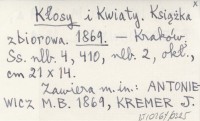 x
Kłosy i Kwiaty. Książka
zbiorowa. 1869. — Kraków,
Ss. nlb. 4, 410, nlb. 2, okł.,
cm 21 x 14.
Zawiera m.in.: ANTONIE-
WICZ M.B. 1869, KREMER J.